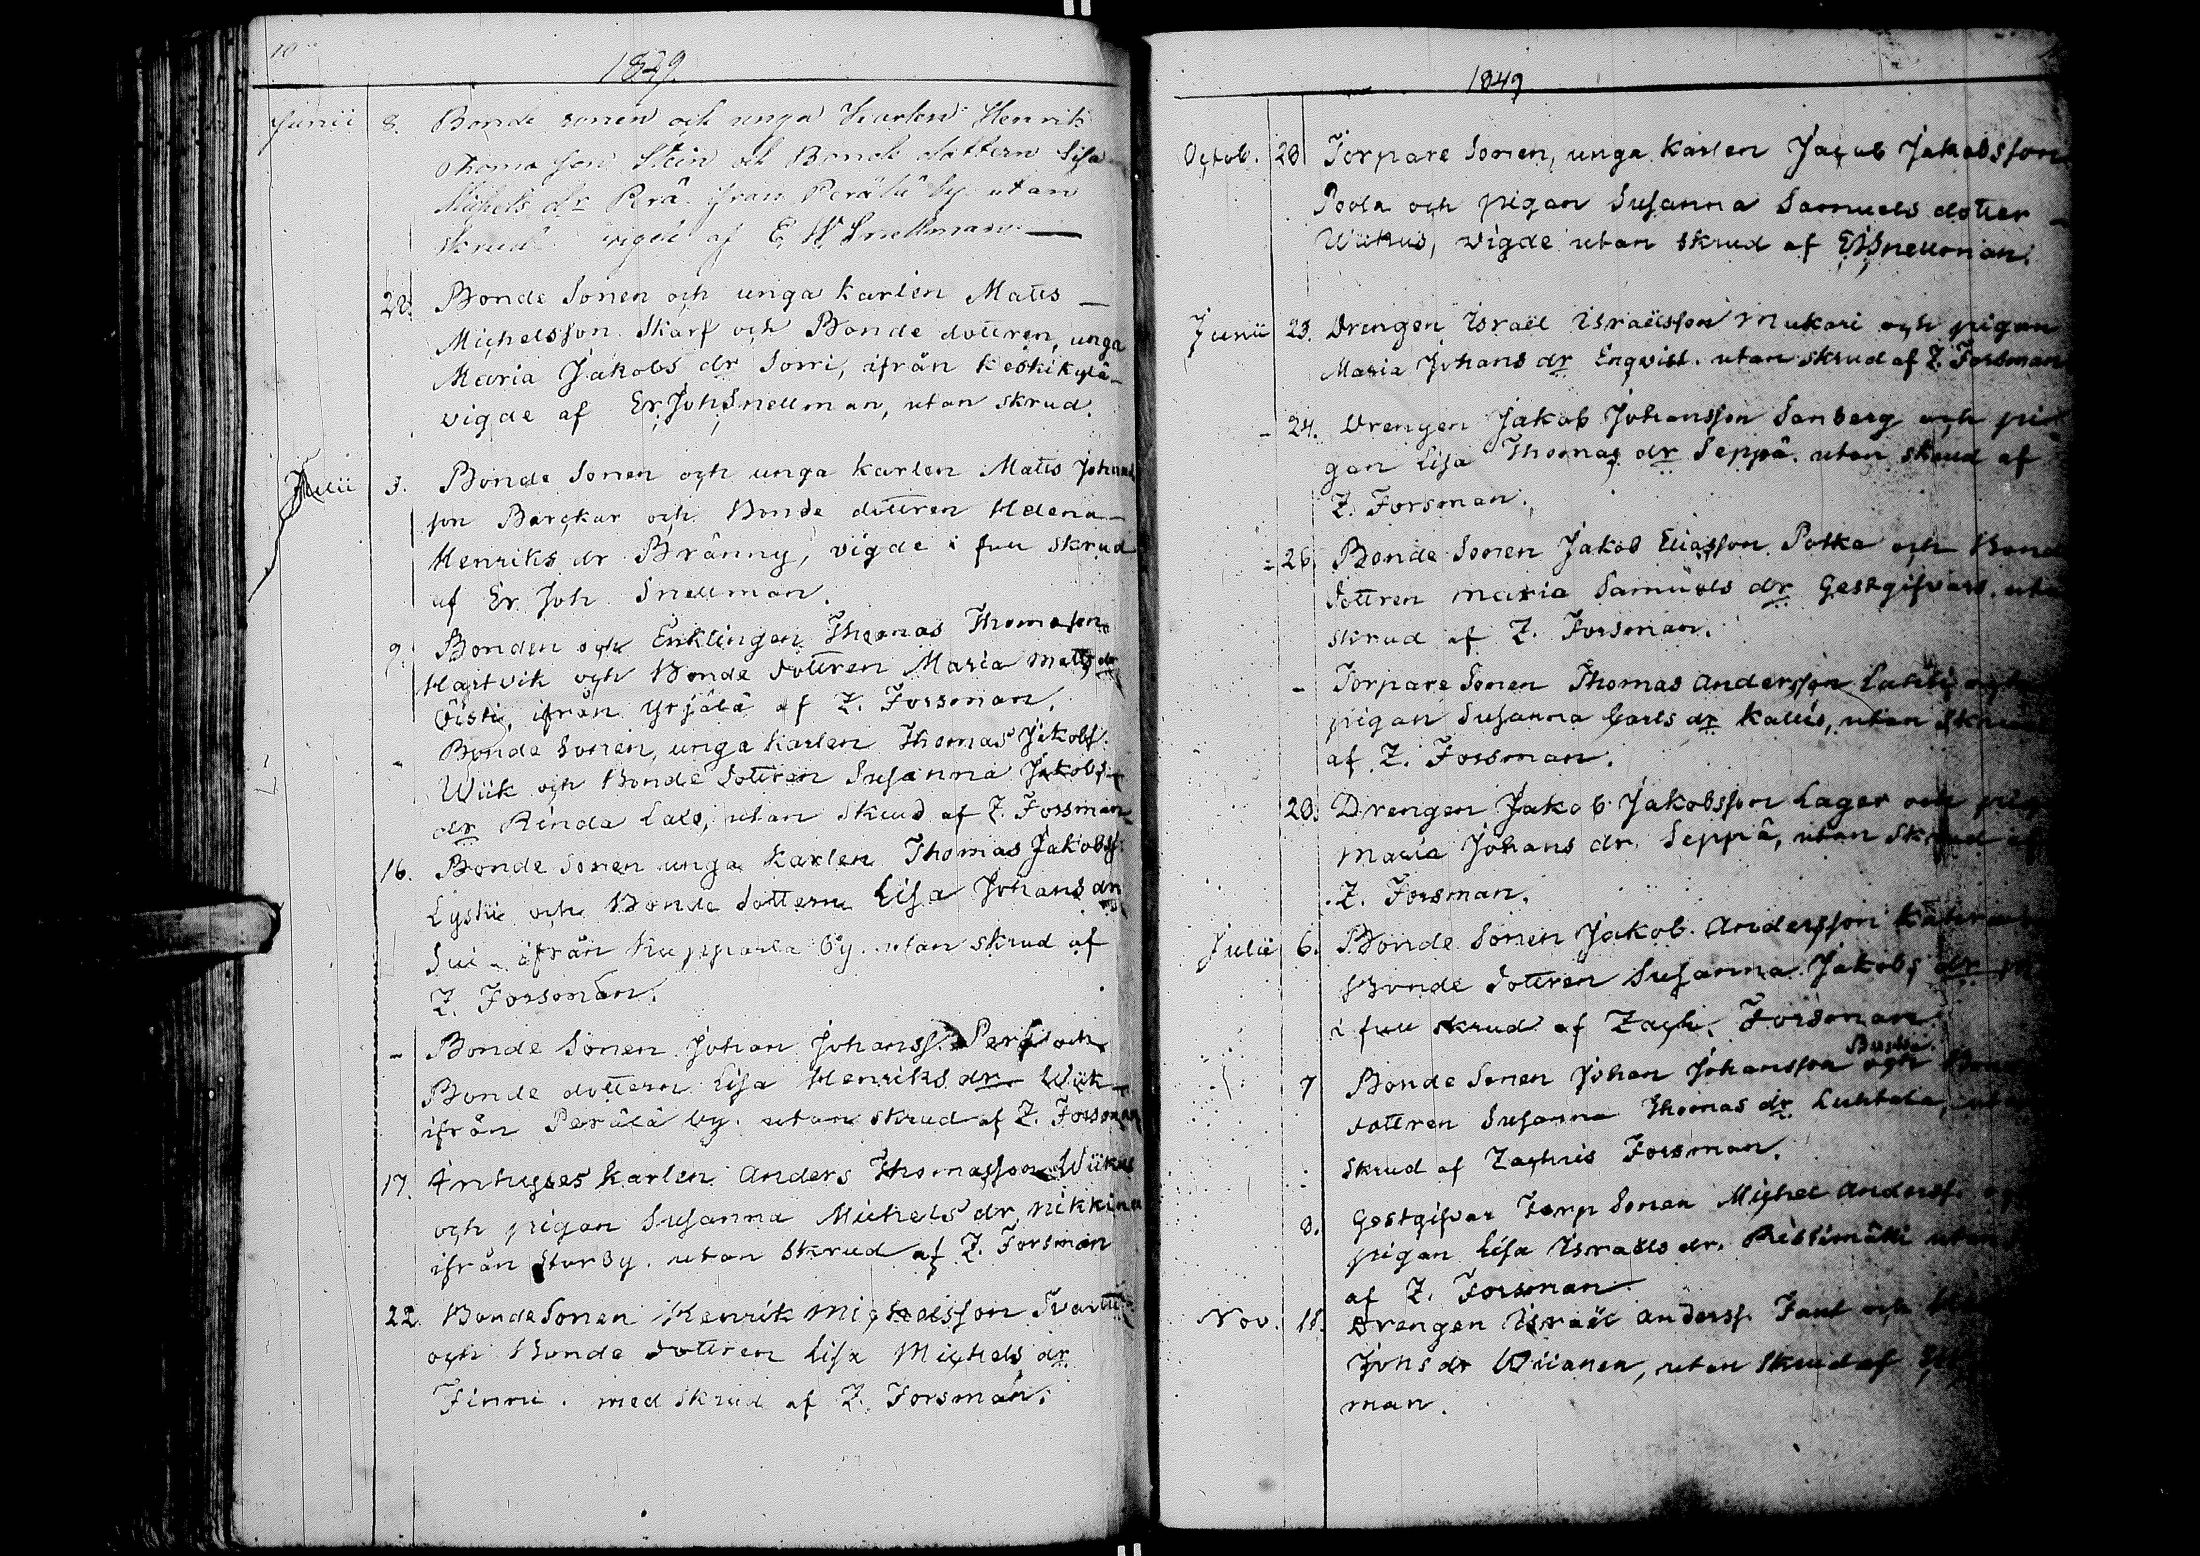 1849.
Junii 8. Bonde sonen och unga Karlen Henrik
Thomasson Stein och Bonde dottern Lisa
Michels dr Perä från Perälä by utan
skrud vigde af E W Snellmann
20. Bonde Sonen och unga karlen Matts
Michelsson Skarf och Bonde dottren, unga
Maria Jakobs dr Sorri, ifrån Keskikylä
vigde af Er Joh Snellman, utan skrud.
Julii 3. Bonde Sonen och unga karlen Matts Johans
son Barckar och Bonde dottren Helena
Henriks dr Bränny, vigde i full skrud
af Er Joh Snellman.
9. Bonden och Enklingen Thomas Thomason
Hartvik och Bonde dottren Maria Matts dr
Öisti, ifrån Yrjälä af Z. Forsman.
- Bonde Sonen, unga karlen Thomas Jakobs.
Wiik och Bonde dottren Susanna Jakobs
dr Rinda Lalo, utan skrud af Z. Forsman
16. Bonde Sonen unga karlen Thomas Jakobss.
och Bonde dottern Lisa Johans dr
Sui ifrån Kupparla by. utan skrud af
Z. Forsman.
- Bonde Sonen Johan Johanss. och
Bonde dottern Lisa Henriks dr Wiik
ifrån Perälä by. utan skrud af Z. Forsman
17. karlen Anders Thomasson Wiikus
och pigan Susanna Michels dr Nikkina
ifrån Storby. utan skrud af Z. Forsman
22. Bonde Sonen Henrik Michelsson
och Bonde dottren Lisa Michels dr
Finni. med skrud af Z. Forsman.
1849
Octob. 28 Torpare Sonen, unga karlen Jacob Jakobsson
Poola och pigan Susanna Samuels dotter
Wiikus, vigde utan skrud af EJSnellman.
Junii 23. Drengen Israël Israëlsson Mukari och pigan
Maria Johans dr Enqvist. utan skrud af Z. Forsman
- 24. Drengen Jakob Johansson Sanberg och pi
gan Lisa Thomas dr Seppä. utan skrud af
Z. Forsman.
- 26. Bonde Sonen Jakob Eliasson Potka och Bonde
dottren Maria Samuels dr Gestgifvars. utan
skrud af Z. Forsman.
- Torpare Sonen Thomas Andersson Lahti och
pigan Susanna Carls dr Kallis, utan skrud
af Z. Forsman.
28. Drengen Jakob Jakobsson Lager och pig
Maria Johans dr. Seppä, utan skrud af
Z. Forsman.
Julii 6. Bonde Sonen Jakob Andersson
Bonde dottren Susanna Jakobs dr
i full skrud af Zach. Forsman
7 Bonde Sonen Johan Johansson och
dottren Susanna Thomas dr Luhtala,
skrud af Zachris Forsman.
8. Gestgifvar Torp Sonen Michel Anderss.
pigan Lisa Israels dr. Ristimäki utan
af Z. Forsman.
Nov. 18. Drengen Israël Anderss. och
Johs dr Wiianen, utan skrud af
man.